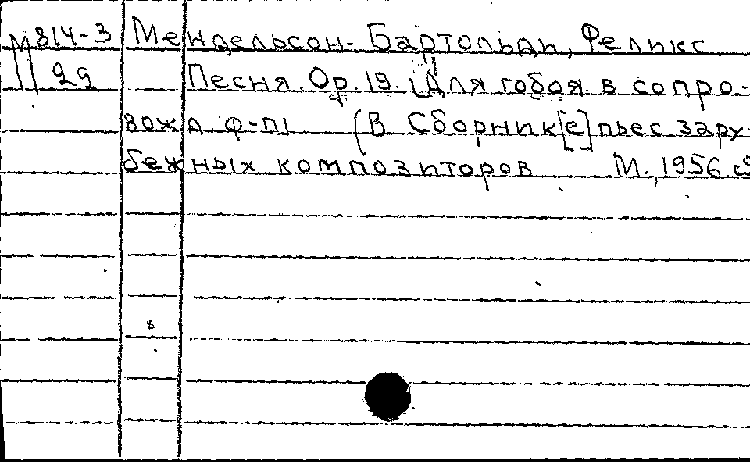 М814-3 Мендельсон-Бартольди, Феликс
П 29 Песня. Op. 19. [Для гобоя в сопро-
вожд ф-п] (В Сборник[е] пьес зару-
бежных композиторов М., 1956.